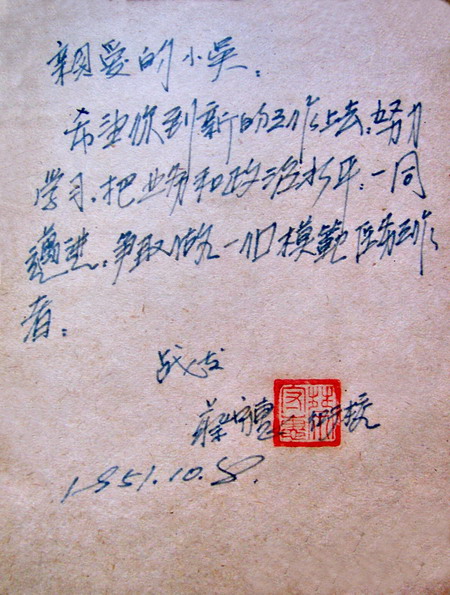 親爱的小吴：
希望你到新的工作上去，努力
学习，把业务和政治水平，一同
邁进，争取做一個模範医务工作
者：
战友
1951.10.8.